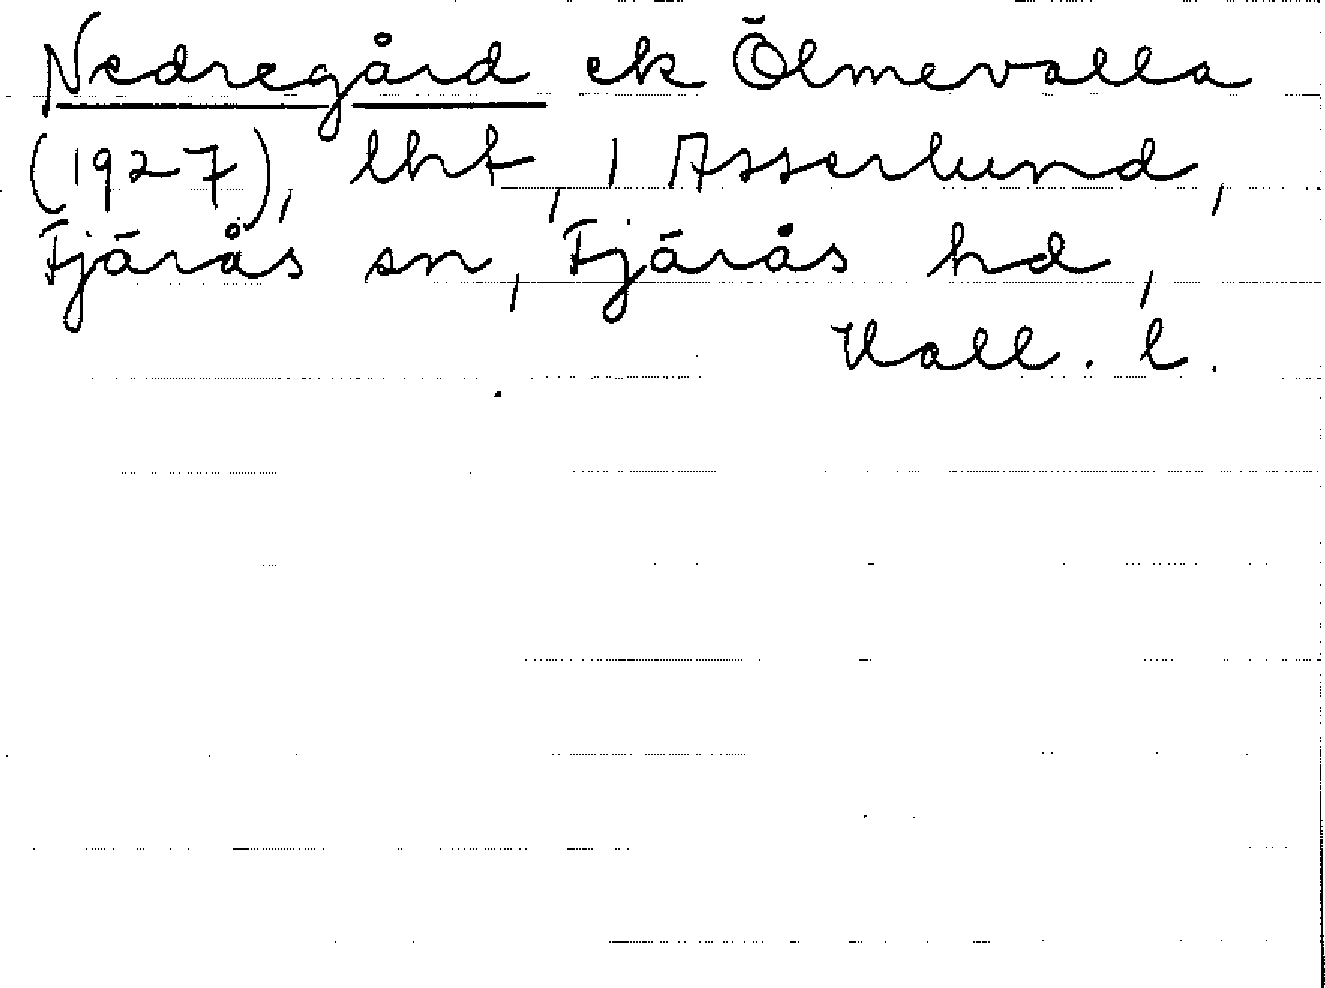 Nedregård ek Ölmevalla
(1927), lht, 1 Asserlund,
Fjärås sn, Fjärås hd,
Hall. l.